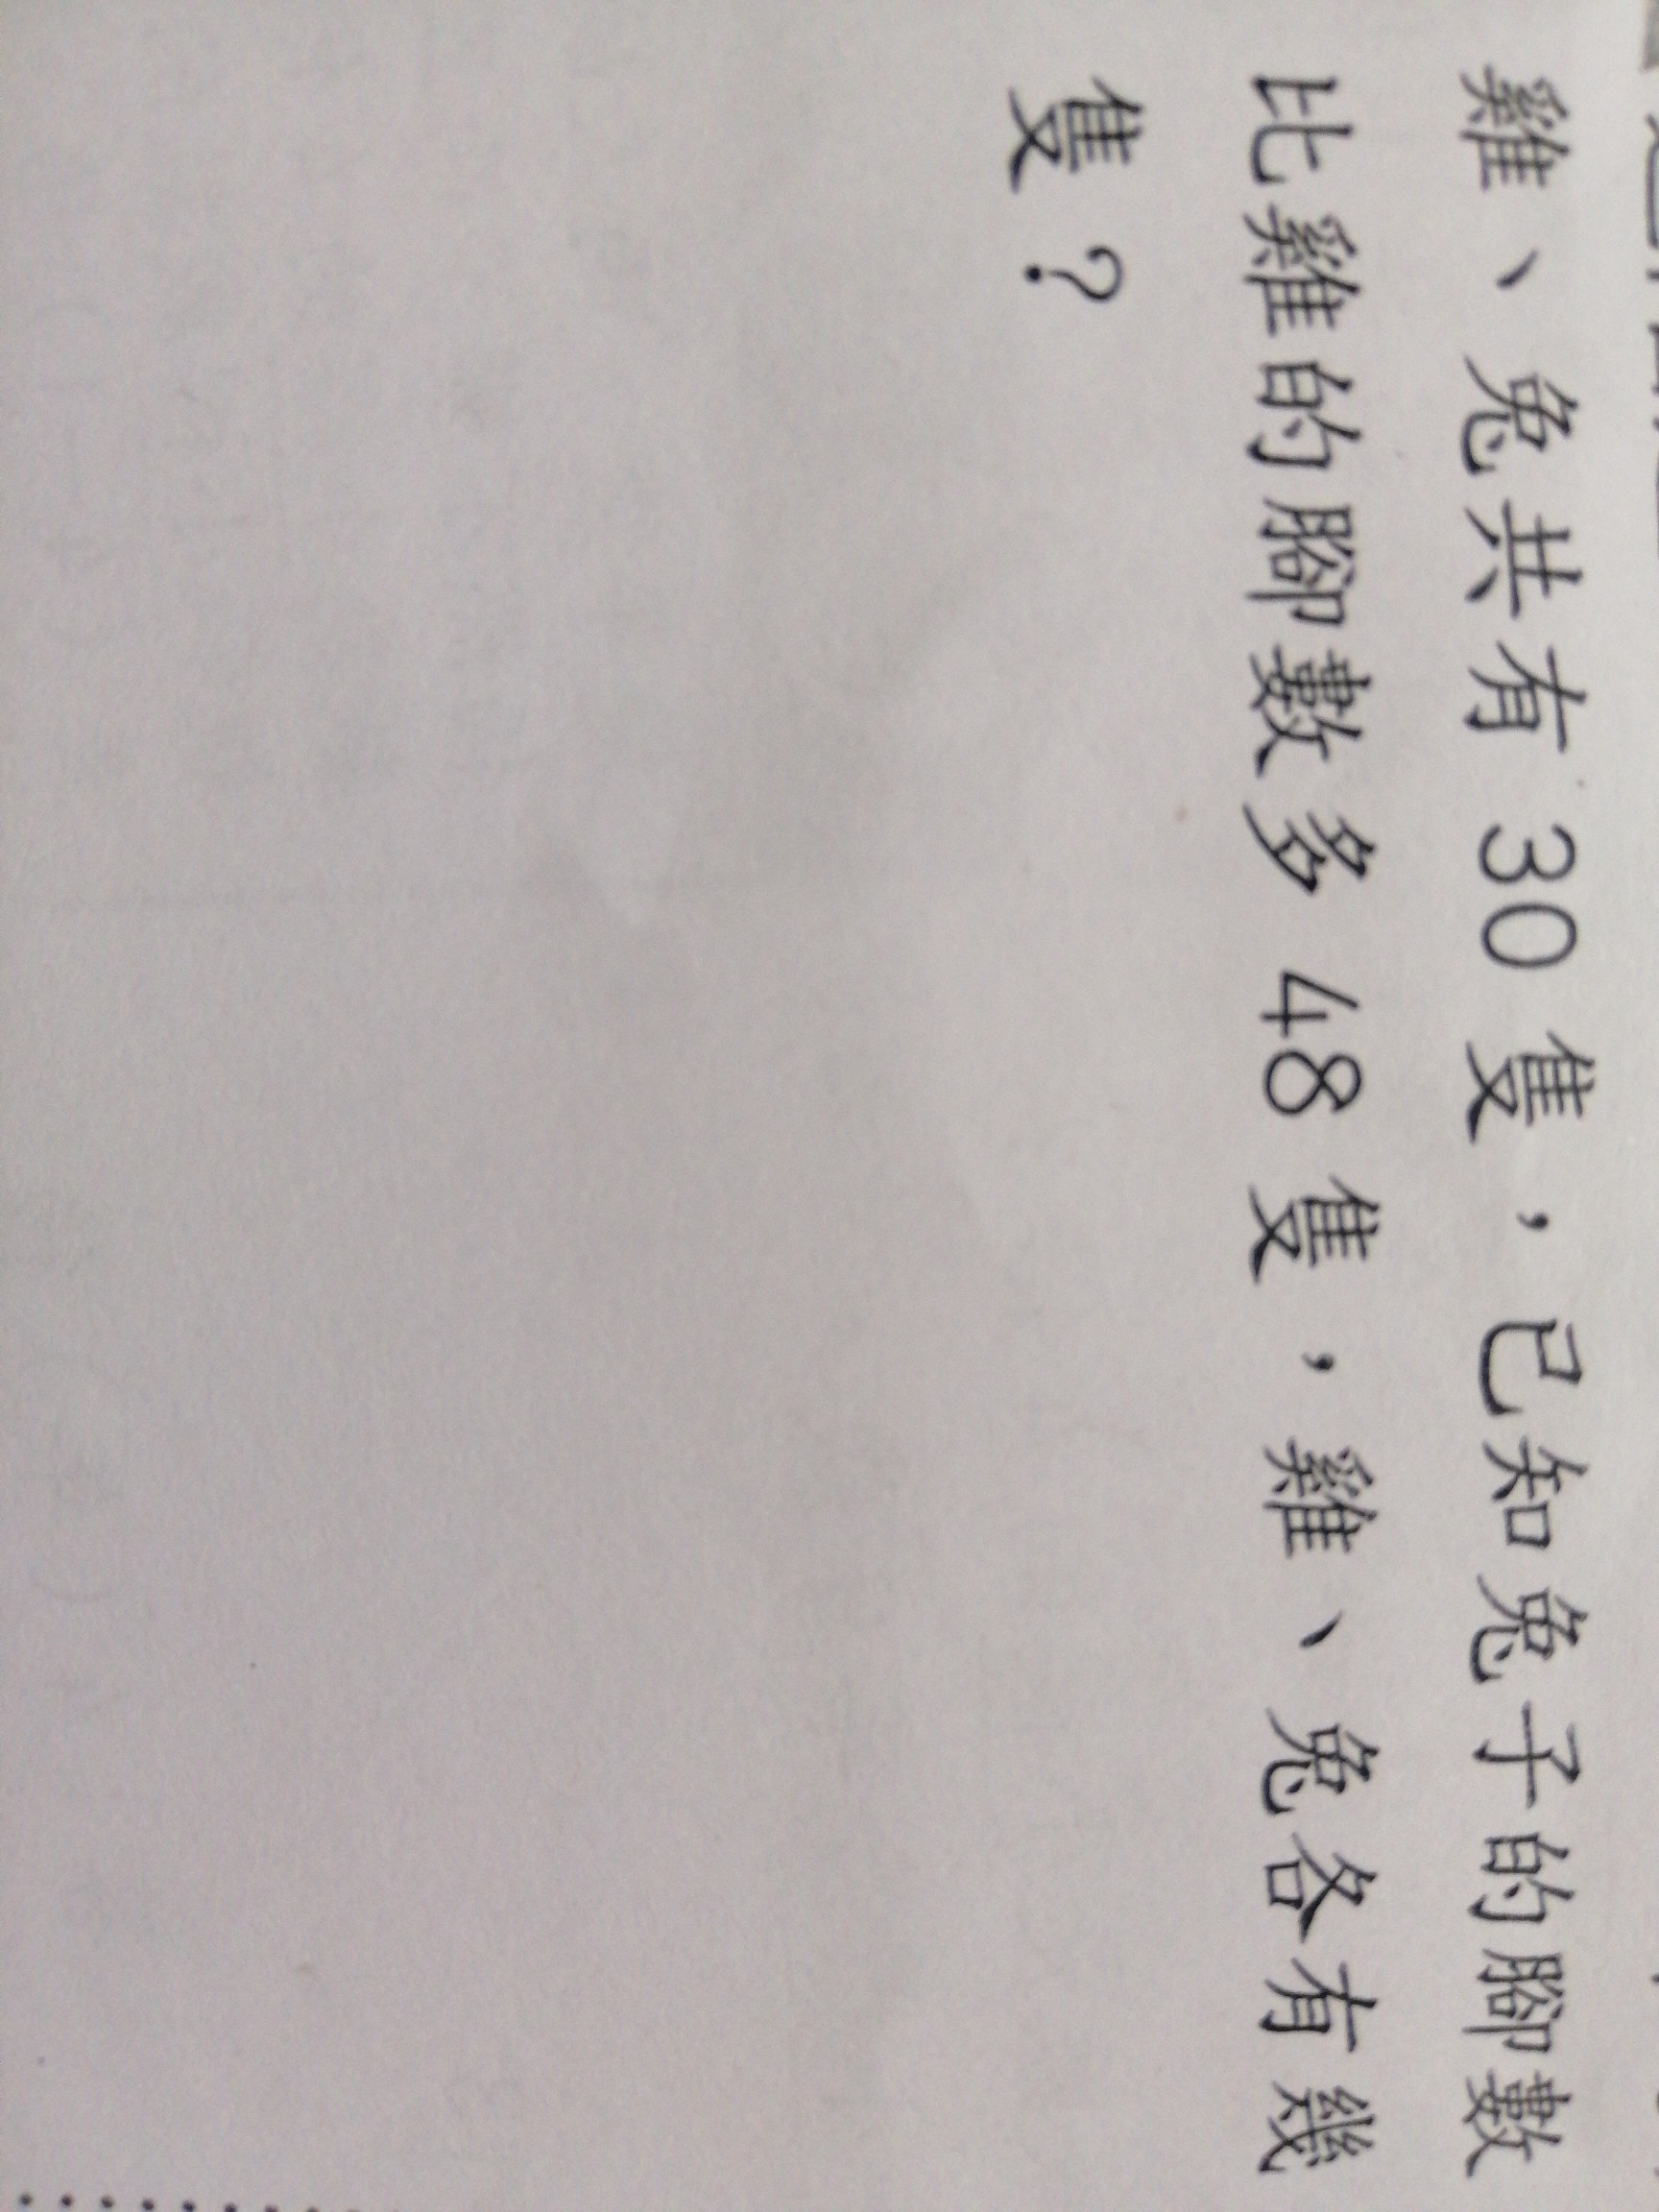 雞、兔共有 30 隻，已知兔子的腳數
比雞的腳數多 48 隻，雞、兔各有幾
隻？